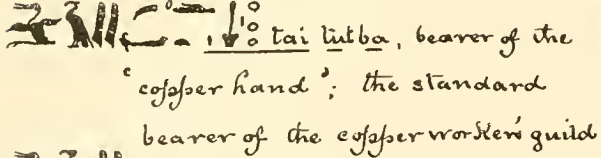 tai tut ba, bearer of the
'copper hand'; the standard
bearer of the copper workers' guild